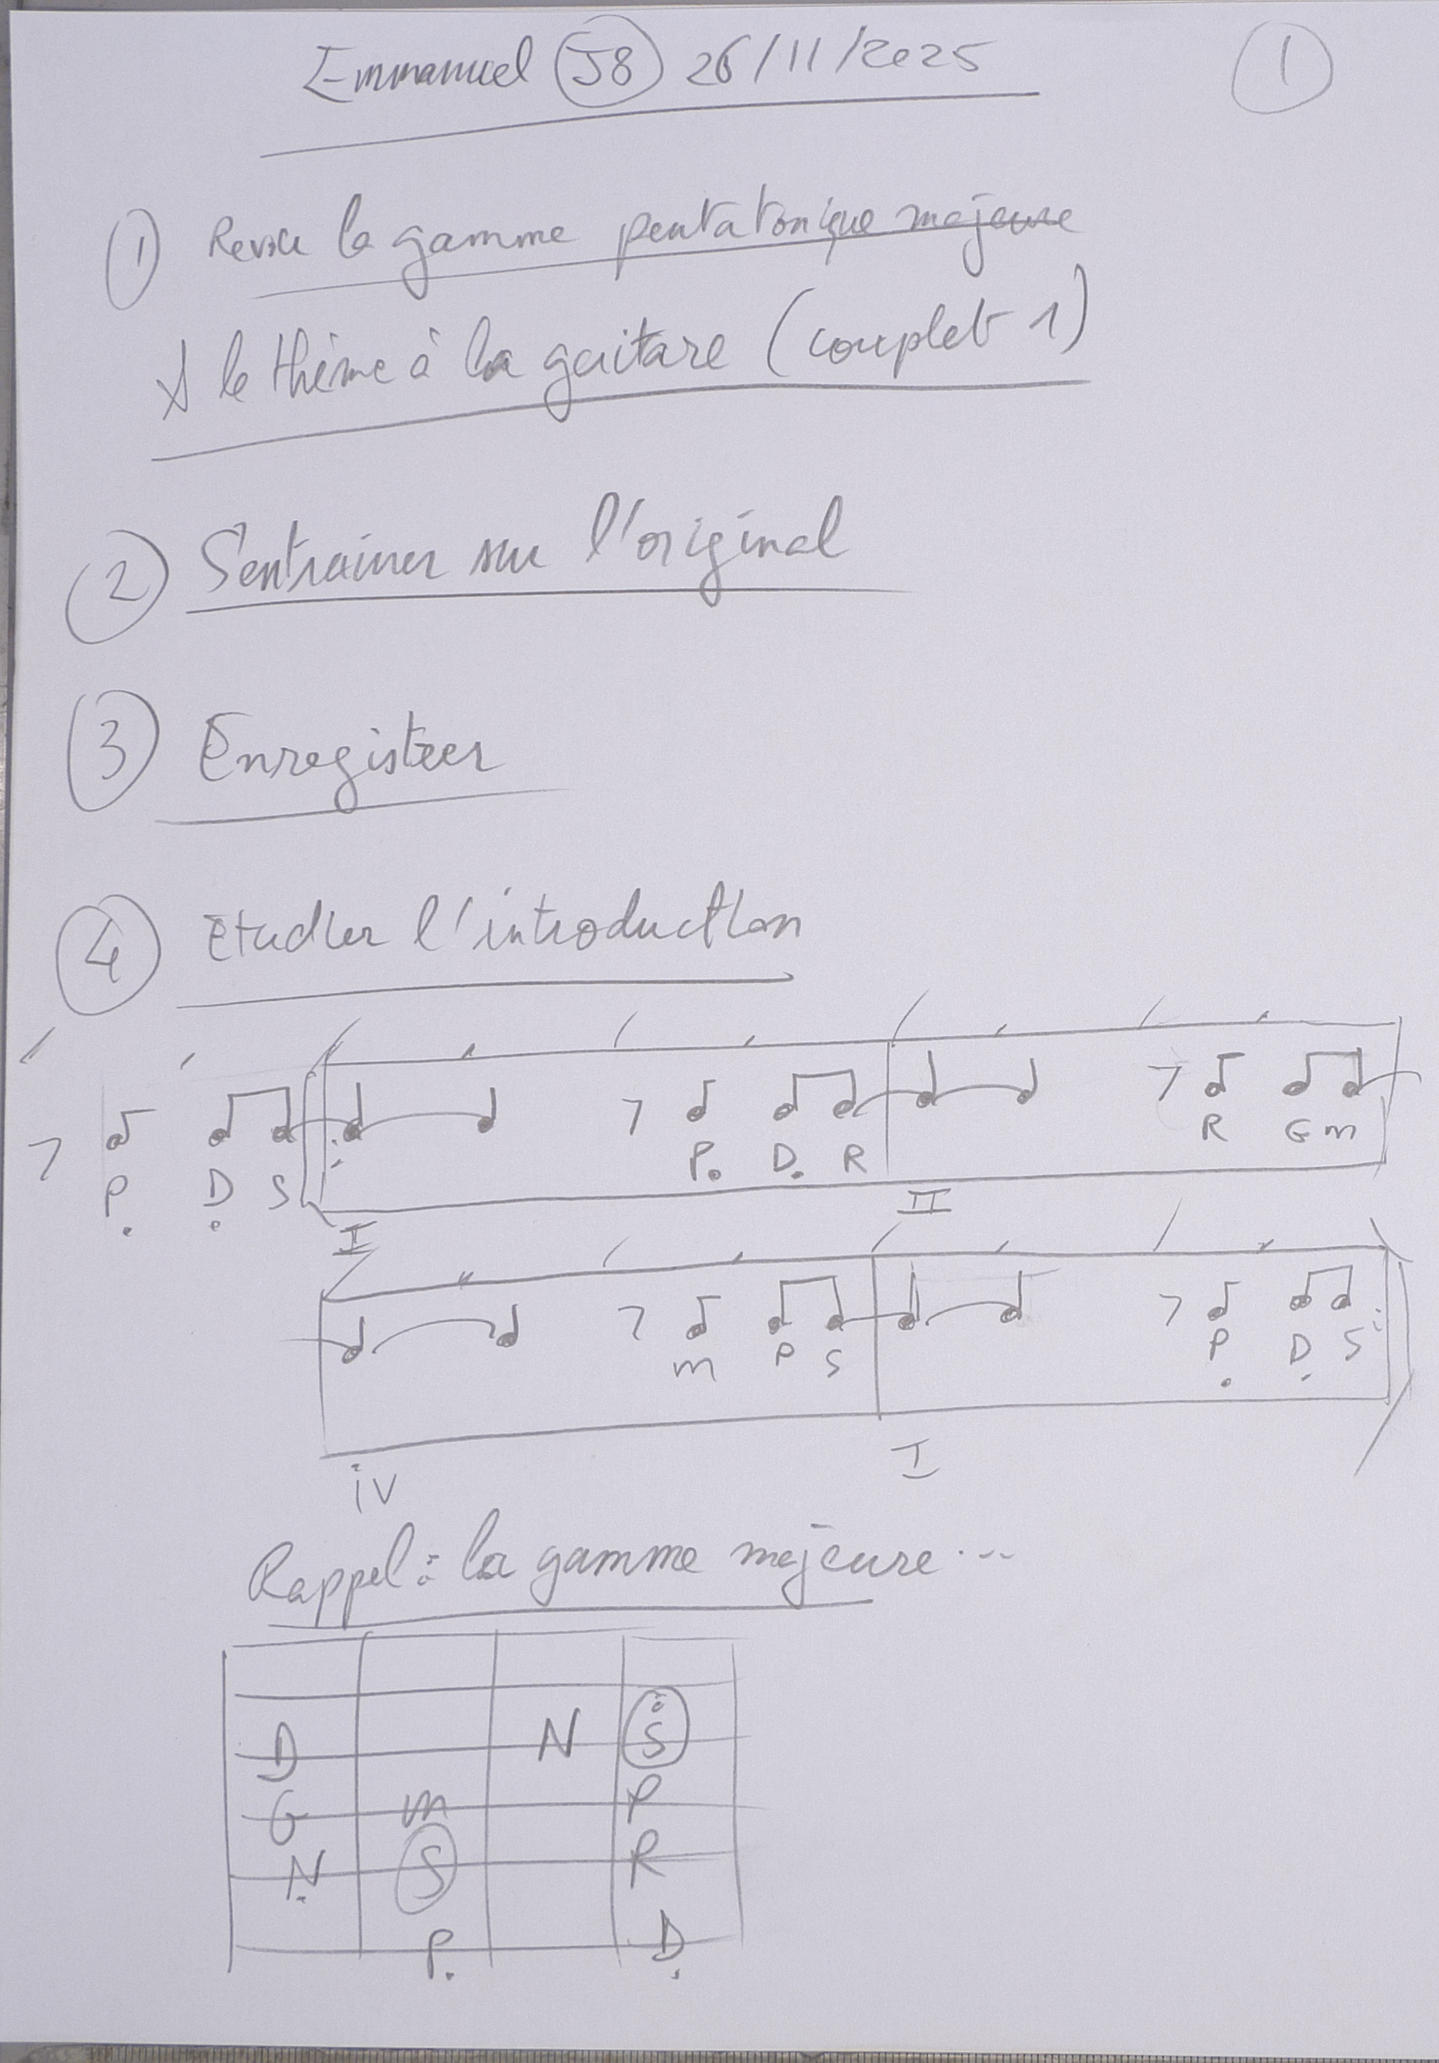 Emmanuel J8 26/11/2025
1
1 Revoir la gamme pentatonique majeure
& le thème à la guitare (couplet 1)
2 S'entrainer sur l'original
3 Enregistrer
4 Etudier l'introduction
P. D. S P. D. R R G m
I II
m P S P. D. S
iv I
Rappel : la gamme majeure...
D N Ṡ
G m P
N. S R
P. D.